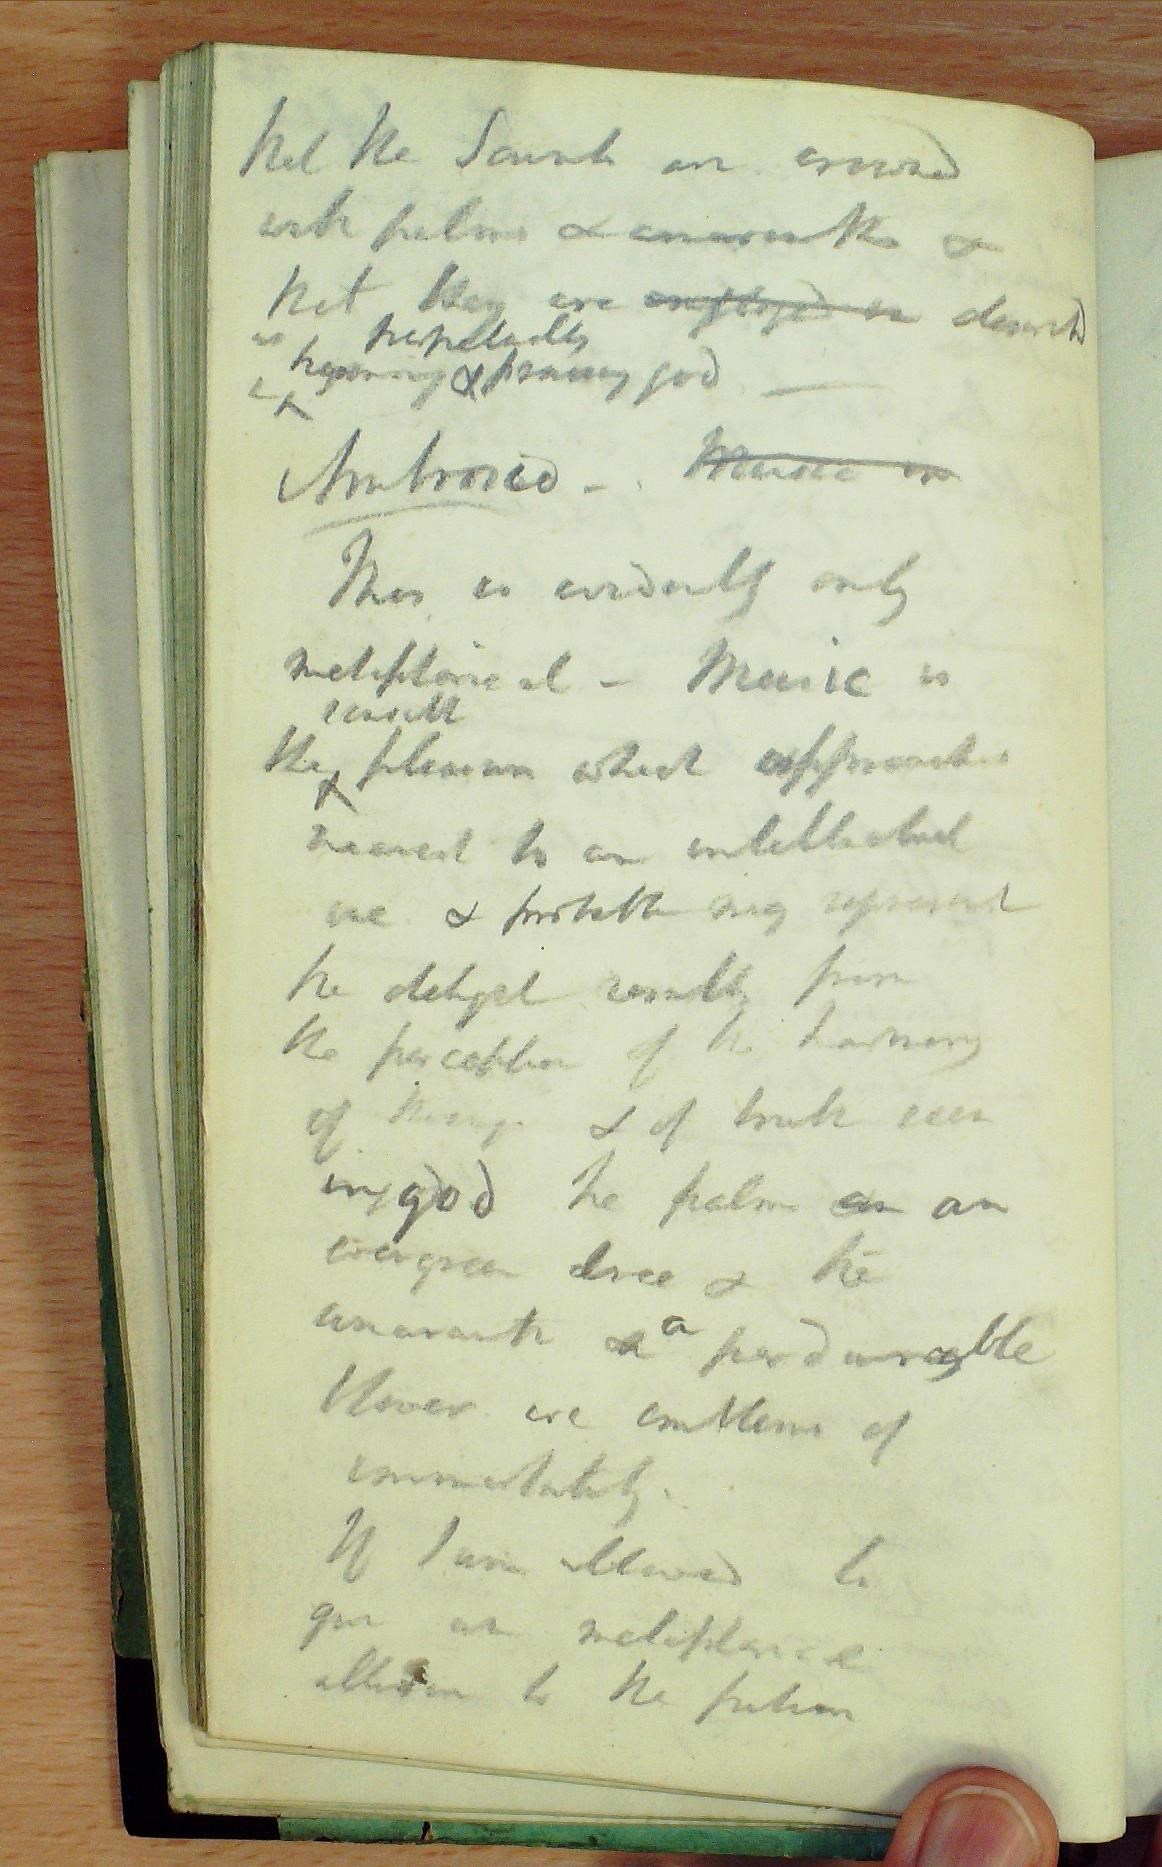 that the Saints are crowned
with palms & amaranths &
that they are employed in described
as perpetually
hymning & praising god —
Ambrosio - . Music is
This is evidently only
metaphorical - Music is
sensible
the pleasure which approaches
nearest to an intellectual
one & probably may represent
the delight resulting from
the perception of the harmony
of things & of truth seen
in god The palm as an
evergreen tree & the
amaranth a perdurable
flower are emblems of
immortality.
If I am allowed to
give a metaphorical
allusion to the future